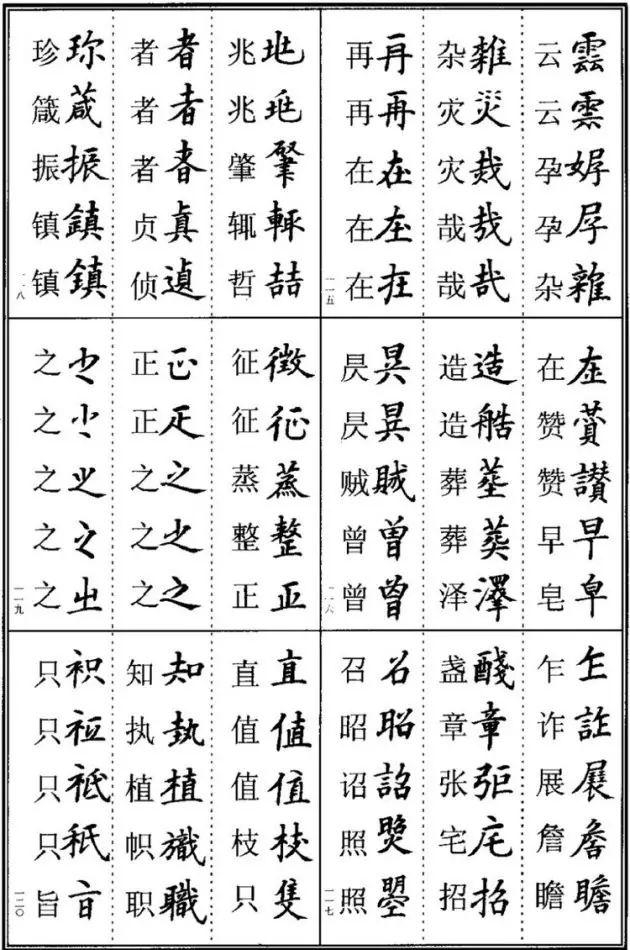 云雲
云雲
孕
孕
杂雜
杂雜
灾災
灾烖
哉哉
哉哉
再再
再再
在在
在在
在在
一一五
在在
赞賛
赞讃
早早
皂皁
造造
造艁
葬塟
葬葬
泽澤
昃昃
昃昃
贼賊
曾曾
曾曾
一一六
乍乍
诈詐
展展
詹詹
瞻瞻
盏醆
章章
张張
宅宅
招招
召召
昭昭
诏詔
照照
照曌
一一七
兆兆
兆兆
肇肇
辄輒
哲喆
者者
者者
者者
贞真
侦遉
珍珎
箴葴
振振
镇鎮
镇鎮
一一八
征徵
征征
蒸蒸
整整
正正
正正
正正
之之
之之
之之
之之
之之
之之
之之
之㞢
一一九
直直
值值
值值
枝枝
只隻
知知
执執
植植
帜旘
职職
只衹
只衹
只祗
只秖
旨旨
一二〇